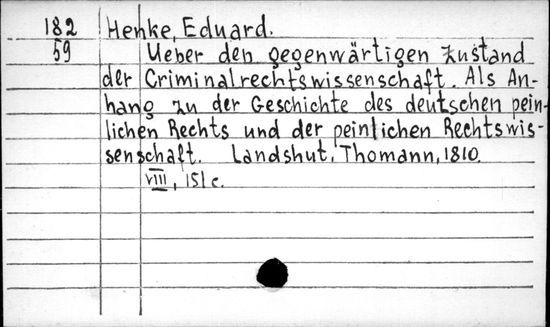 182 Henke, Eduard.
59 Ueber den gegenwärtigen Zustand
der Criminalrechtswissenschaft. Als An-
hang zu der Geschichte des deutschen pein-
lichen Rechts und der peinlichen Rechtswis-
senschaft. Landshut, Thomann, 1810.
VIII, 151 c.